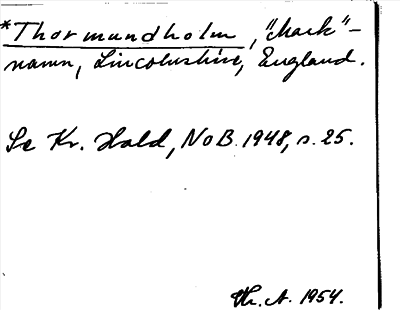 *Thormundholm, "Mark"-
namn, Lincolnshire, England.
Se Kr. Hald, NoB. 1948, s. 25.
Th. A. 1954.